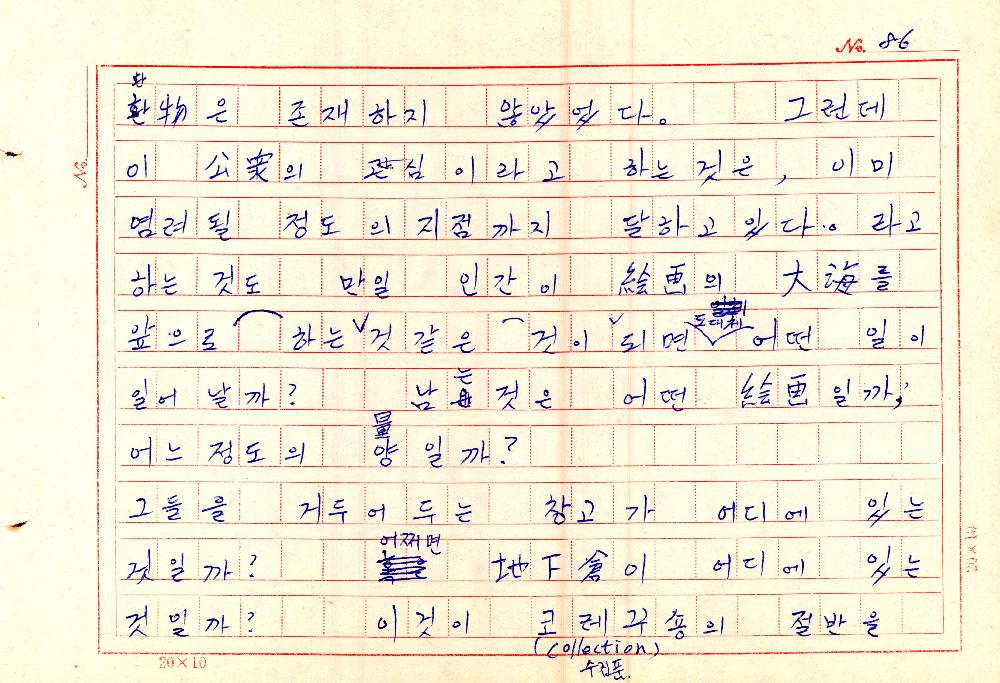 No. 86
환物은 존재하지 않았었다. 그런데
이 公衆의 관심이라고 하는 것은, 이미
염려될 정도의 지점까지 달하고 있다. 라고
하는 것도 만일 인간이 絵画의 大海를
도대체
앞으로 하는 것 같은 것이 되면 어떤 일이
일어 날까? 남는 것은 어떤 絵画일까;
量
어느 정도의 양일까?
그들을 거두어 두는 창고가 어디에 있는
어찌면
것일까? 地下倉이 어디에 있는
것일까? 이것이 코레구숑의 절반을
(collection)
수집품.
No.
20×10
20×10